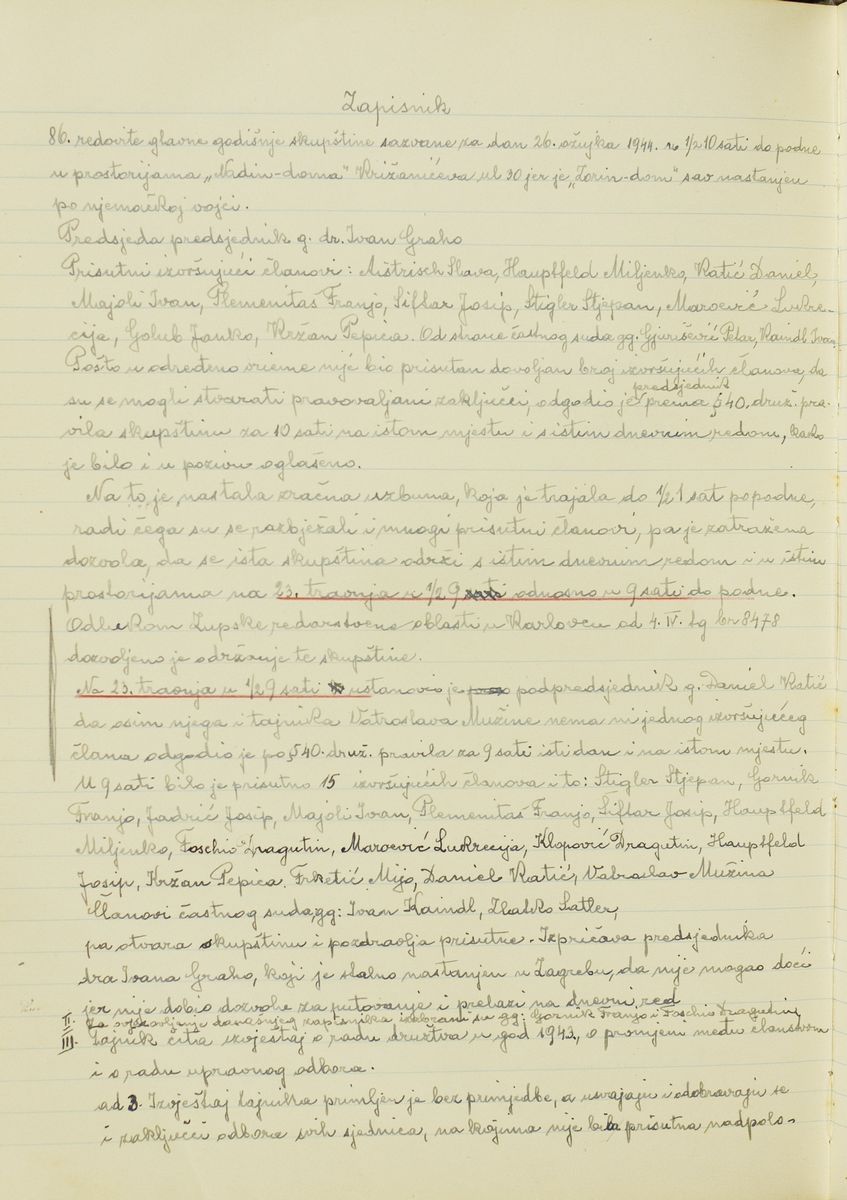 Zapisnik
86. redovite glavne godišnje skupštine sazvane za dan 26. ožujka 1944. u 1/2 10 sati do podne
u prostorijama „Nadin-doma" Križanićeva ul 30 jer je „Zorin-dom" sav nastanjen
po njemačkoj vojci.
Predsjeda predsjednik g. dr. Ivan Graho
Prisutni izvršujući članovi: Aištrisch Slava, Hauptfeld Miljenko, Katić Daniel,
Majoli Ivan, Plemenitaš Franjo, Šiftar Josip, Stigler Stjepan, Maroević Lukre-
cija, Golub Janko, Kržan Pepica. Od strane častnog suda gg. Gjurišević Petar, Kaindl Ivan
Pošto u određeno vrieme nije bio prisutan dovoljan broj izvršujućih članova, da
su se mogli stvarati pravovaljani zaključci, odgodio je predsjednik prema § 40. druž. pra-
vila skupštinu za 10 sati na istom mjestu i s istim dnevnim redom, kako
je bilo i u pozivu oglašeno.
Na to je nastala zračna uzbuna, koja je trajala do 1/2 1 sat popodne,
radi čega su se razbježali i mnogi prisutni članovi, pa je zatražena
dozvola, da se ista skupština održi s istim dnevnim redom i u istim
prostorijama na 23. travnja u 1/2 9 sati odnosno u 9 sati do podne.
Odlukom Župske redarstvene oblasti u Karlovcu od 4. IV. tg br 8478
dozvoljeno je održanje te skupštine.
Na 23. travnja u 1/2 9 sati ustanovio je podpredsjednik g. Daniel Katić
da osim njega i tajnika Vatroslava Mužine nema ni jednog izvršujućeg
člana odgodio je po § 40. druž. pravila za 9 sati isti dan i na istom mjestu.
U 9 sati bilo je prisutno 15 izvršujućih članova i to: Stigler Stjepan, Gornik
Franjo, Jadrić Josip, Majoli Ivan, Plemenitaš Franjo, Šiftar Josip, Hauptfeld
Miljenko, Foschio Dragutin, Maroević Lukrecija, Klopović Dragutin, Hauptfeld
Josip, Kržan Pepica, Frketić Mijo, Daniel Katić, Vatroslav Mužina
Članovi častnog suda, gg: Ivan Kaindl, Zlatko Satler,
pa otvara skupštinu i pozdravlja prisutne. Izpričava predsjednika
dra Ivana Graho, koji je stalno nastanjen u Zagrebu, da nije mogao doći
jer nije dobio dozvole za putovanje i prelazi na dnevni red
II. Za ovjerovljenje današnjeg zapisnika izabrani su gg: Gornik Franjo i Foschio Dragutin,
III. Tajnik čita izvještaj o radu družtva u god 1943, o promjeni među članstvom
i o radu upravnog odbora.
ad 3. Izvještaj tajnika primljen je bez primjedbe, a usvajaju i odobravaju se
i zaključci odbora svih sjednica, na kojima nije bila prisutna nadpolo-